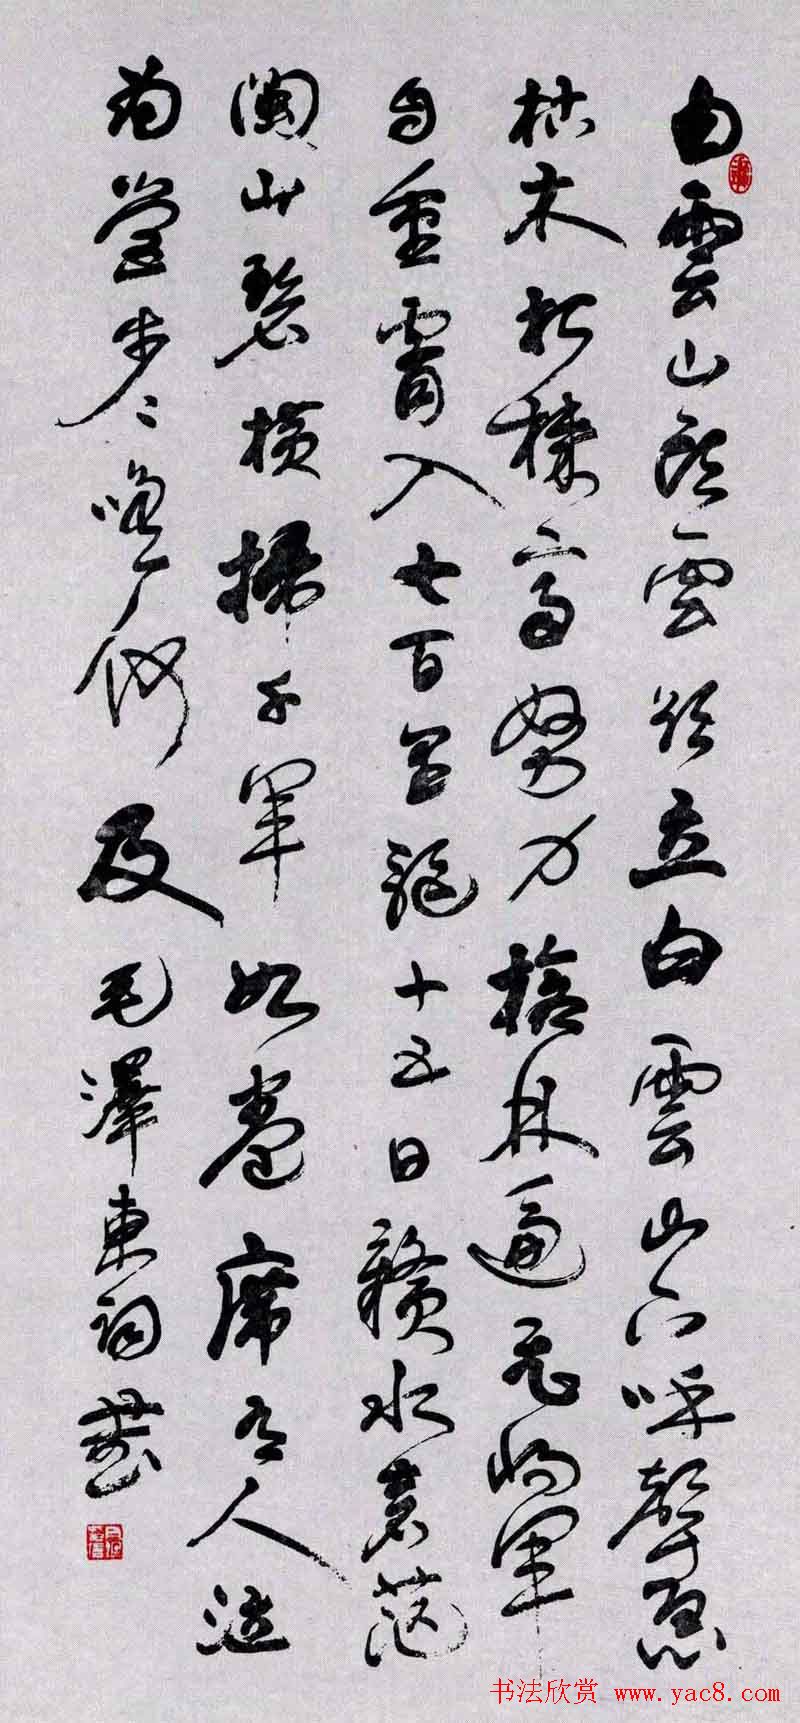 白雲山頭雲欲立白雲山下呼聲急
枯木朽株齊努力槍林逼飛將軍
自重霄入七百里驅十五日贛水蒼茫
閩山碧橫掃千軍如卷席有人泣
為營步々嗟何及毛澤東詞
书法欣赏 www.yac8.com